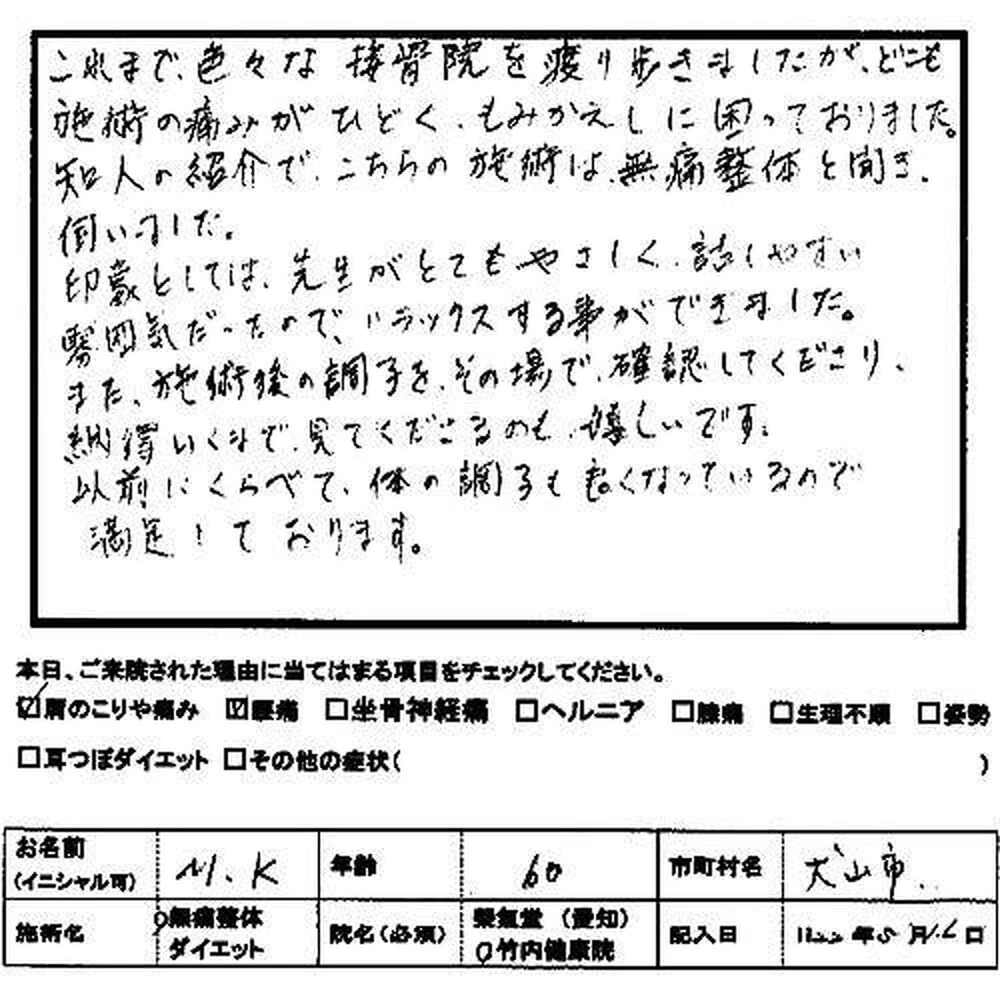 これまで、色々な 接骨院を渡り歩きましたが、どこも
施術の痛みがひどく、もみかえしに困っておりました。
知人の紹介で、こちらの施術は、無痛整体と聞き、
伺いました。
印象としては、先生がとてもやさしく、話しやすい
雰囲気だったので、リラックスする事ができました。
また、施術後の調子を、その場で、確認してくださり、
納得いくまで、見てくださるのも、嬉しいです。
以前にくらべて、体の調子も良くなっているので
満足しております。
本日、ご来院された理由に当てはまる項目をチェックしてください。
☑肩のこりや痛み ☑腰痛 □坐骨神経痛 □ヘルニア □膝痛 □生理不順 □姿勢
□耳つぼダイエット □その他の症状( )
お名前 (イニシャル可) M.K 年齢 60 市町村名 犬山市
施術名 無痛整体 ダイエット 院名(必須) 榮氣堂 (愛知) 竹内健康院 記入日 年5月 日